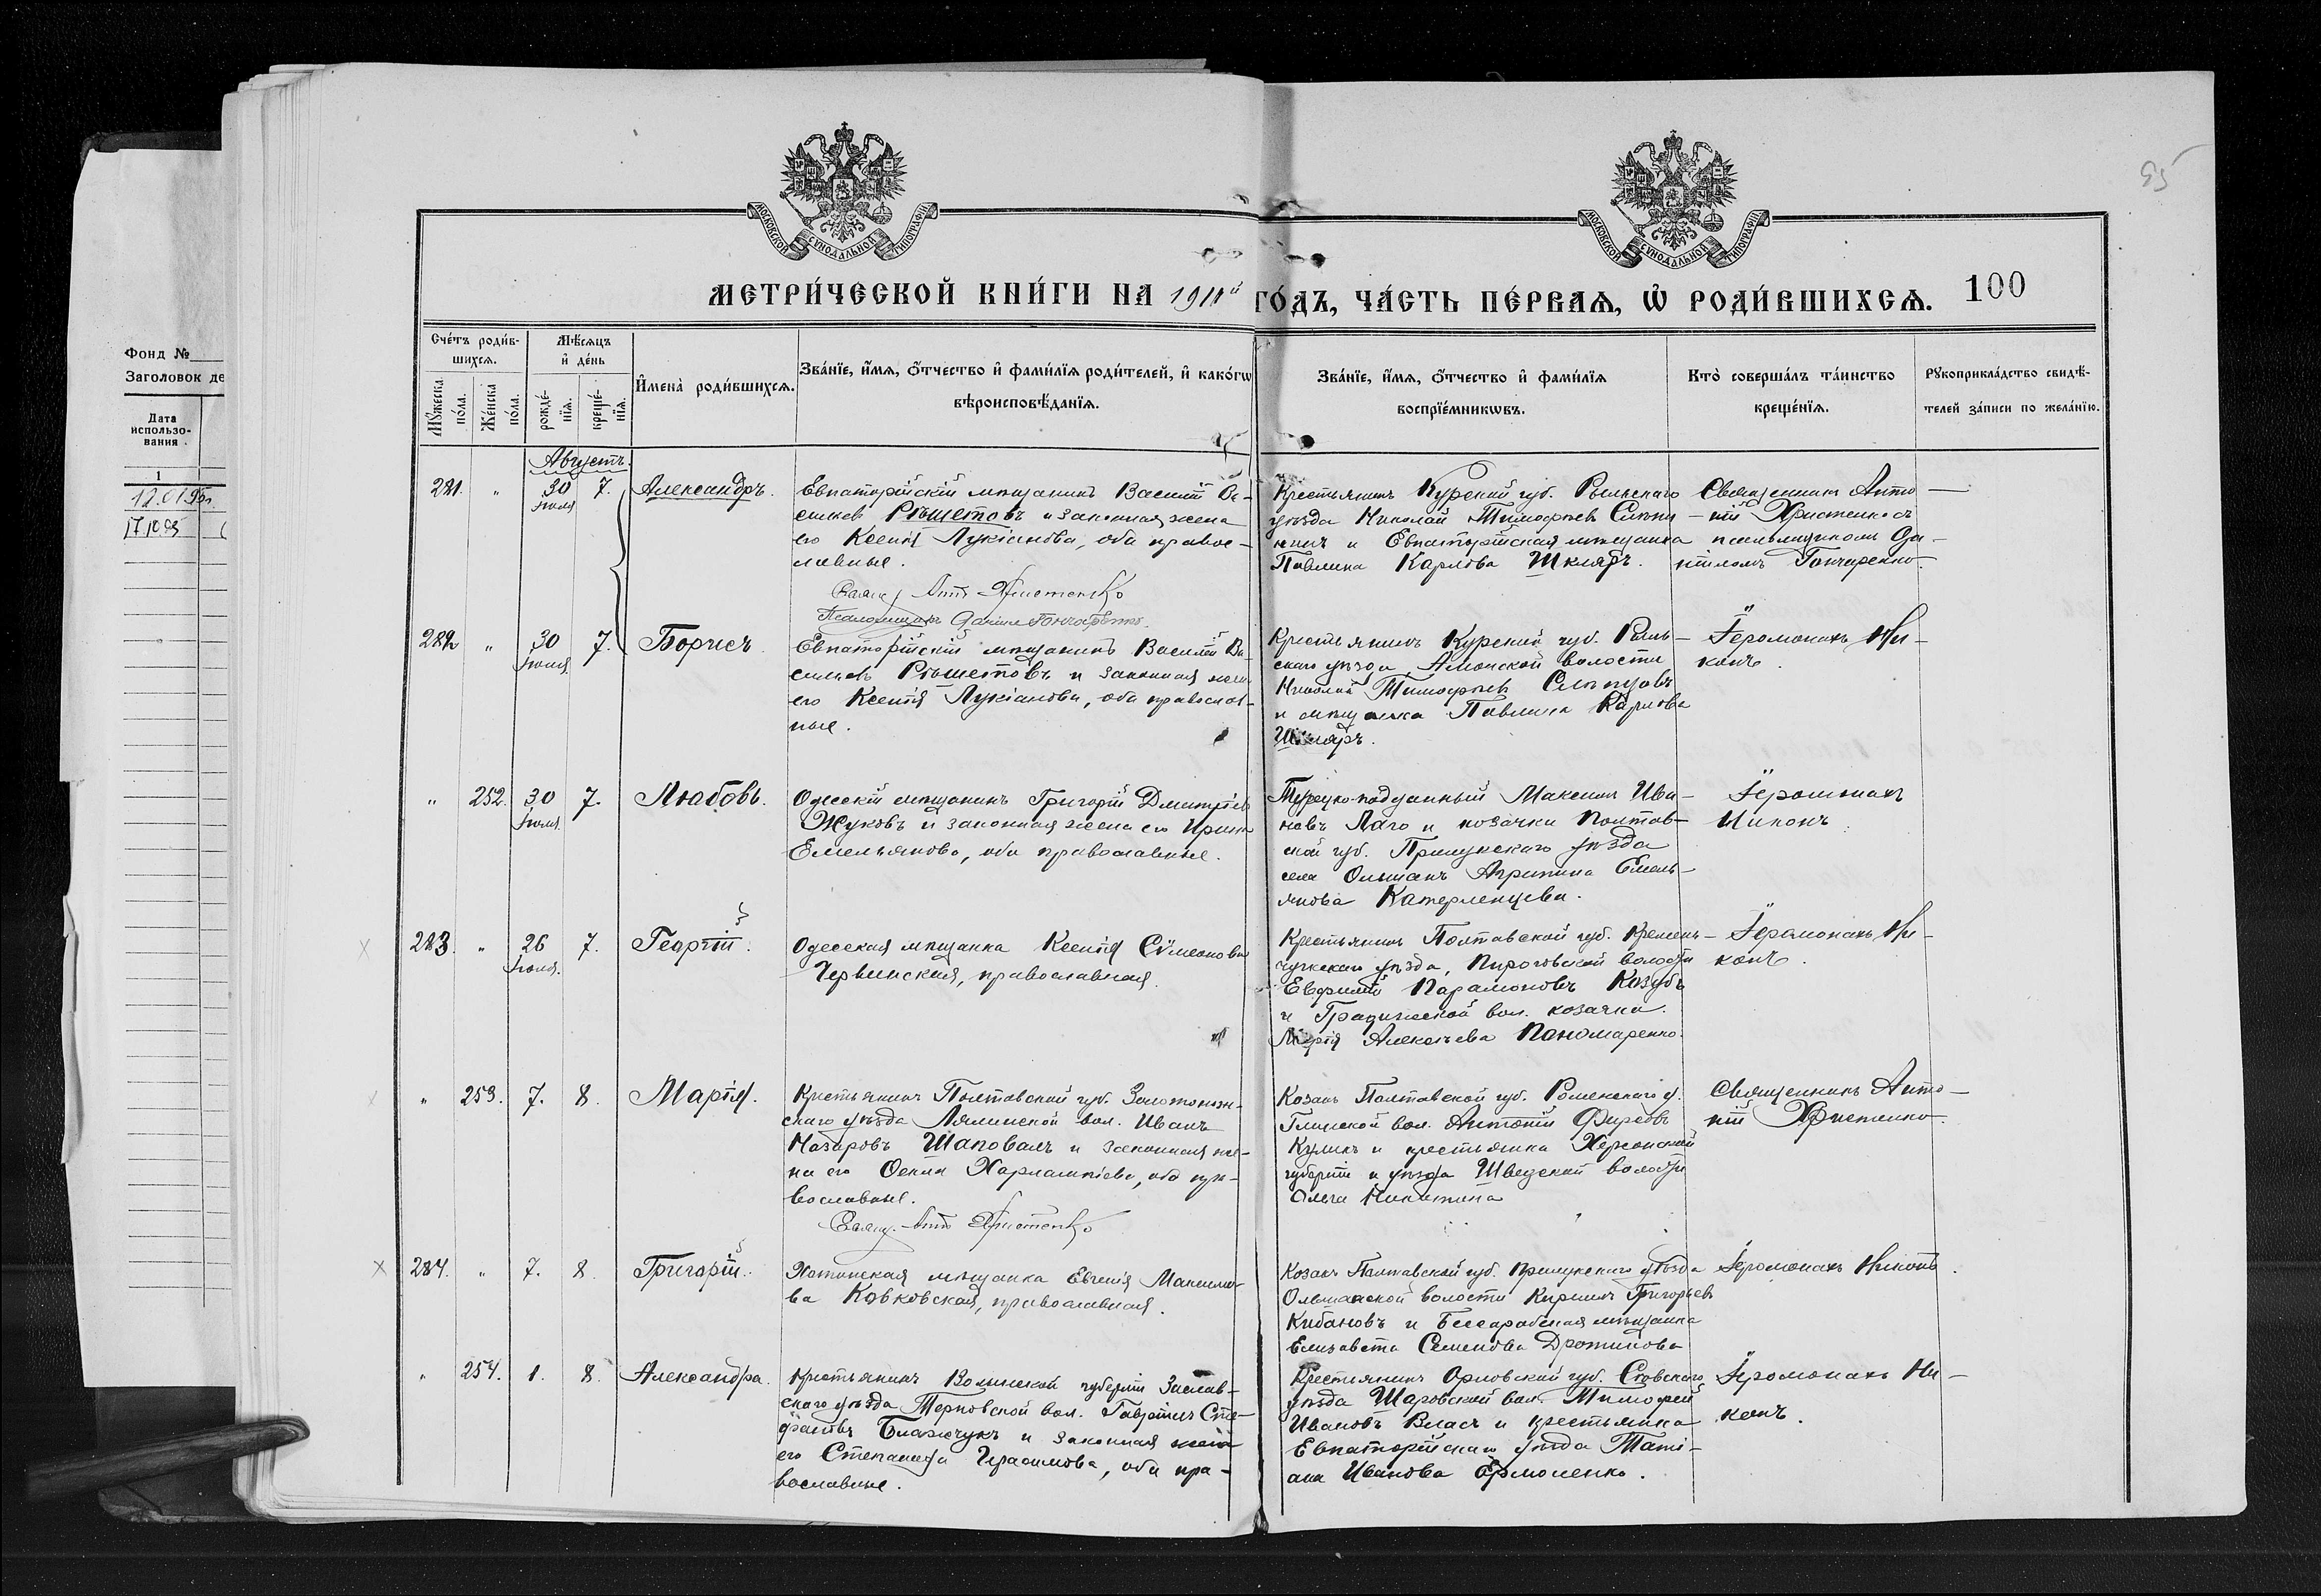 95
МОСКОВСКОЙ СѴНОДАЛЬНОЙ ТИПОГРАФІИ
МОСКОВСКОЙ СѴНОДАЛЬНОЙ ТИПОГРАФІИ
МЕТРИ́ЧЕСКОЙ КНИ́ГИ НА 1911й ГО́ДЪ, ЧА́СТЬ ПЕ́РВАѦ, Ѡ҆ РОДИ́ВШИХСѦ.
100
Фонд №
Заголовок де
Дата
использо-
вания
1
12.01.95г.
17.10.95
Сче́тъ роди́в-
шихсѧ.
Мꙋ́жеска
по́ла.
Же́нска
по́ла.
Мѣ́сѧцъ
и҆ де́нь
рожде́-
нїѧ.
креще́-
нїѧ.
И҆мена̀ роди́вшихсѧ.
Зва́нїе, и҆́мѧ, ѻ҆́тчество и҆ фами́лїѧ роди́телей, и҆ како́гѡ
вѣроисповѣ́данїѧ.
Зва́нїе, и҆́мѧ, ѻ҆́тчество и҆ фами́лїѧ
воспрїе́мникѡвъ.
Кто̀ соверша́лъ та́инство
креще́нїѧ.
Рꙋкоприкла́дство свидѣ́-
телей за́писи по жела́нїю.
Августъ.
281. " 30 Іюля 7. Александръ.
Евпаторійскій мѣщанинъ Василій Ва-
сильев Рѣшетовъ и законная жена
его Ксенія Лукіанова, оба правос-
лавные.
Свящ. Антоній Христенко
Псаломщикъ Даніилъ Гончаренко.
Крестьянинъ Курской губ. Рыльскаго
уѣзда Николай Тимофѣев
и Евпаторійская мѣщанка
Павлина Карлова Шкляръ.
Священникъ Анто-
ній Христенко съ
псаломщикомъ Да-
ніиломъ Гончаренко.
282 " 30 Іюля 7. Борисъ.
Евпаторійскій мѣщанинъ Василій Ва-
сильевъ Рѣшетовъ и законная жена
его Ксенія Лукіанова, оба православ-
ные.
Крестьянинъ Курской губ. Рыль-
скаго уѣзда, Амонской волости
Николай Тимофѣев Слѣпцовъ
и мѣщанка Павлина Карлова
Шкляръ.
Іеромонахъ Ни-
конъ.
" 252. 30 Іюля 7. Любовь.
Одесскій мѣщанинъ Григорій Дмитріев
Жуковъ и законная жена его Ирина
Емельянова, оба православные.
Турецко-подданный Максимъ Ива-
новъ Лаго и козачка Полтав-
ской губ. Прилукскаго уѣзда
села Ольшанъ Агрипина Емель-
янова Катерленцева.
Іеромонахъ
Никонъ.
283. " 26 Іюля. 7. Георгій.
Одесская мѣщанка Ксенія Сѵмеонова
Червинская, православная.
Крестьянинъ Полтавской губ. Кремен-
чугскаго уѣзда, Пироговской волости
Евфимій Парамоновъ Козубъ
и Градижской вол. козачка
Марія Алексѣева Пономаренко.
Іеромонахъ Ни-
конъ.
" 253. 7. 8. Марія.
Крестьянинъ Полтавской губ. Золотонош-
скаго уѣзда Лялинской вол. Иванъ
Назаровъ Шаповалъ и законная же-
на его Харлампіева, оба пра-
вославные.
Свящ. Антоній Христенко
Козакъ Полтавской губ. Роменскаго у.
Глинской вол. Антоній Фирсовъ
Куликъ и крестьянка Херсонской
губерніи и уѣзда Шведской волости
Ольга Никитина
Священникъ Анто-
ній Христенко.
284. " 7. 8. Григорій.
Хотинская мѣщанка Евгенія Максимо-
ва Ковковская, православная.
Козакъ Полтавской губ. Прилукскаго уѣзда
Ольшанской волости Кириллъ Григорьев
Кибановъ и Бессарабская мѣщанка
Елизавета Семенова Дротикова
Іеромонахъ Никонъ.
" 254. 1. 8. Александра.
Крестьянинъ Волынской губерніи Заслав-
скаго уѣзда Терновской вол. Гавріилъ Сте-
фановъ Блажчукъ и законная жена
его Степанида Герасимова, оба пра-
вославные.
Крестьянинъ Орловской губ. Сѣвскаго
уѣзда Шаровской вол. Тимофей
Ивановъ Власъ и крестьянка
Евпаторійскаго уѣзда Таті-
ана Иванова Ермоленко.
Іеромонахъ Ни-
конъ.